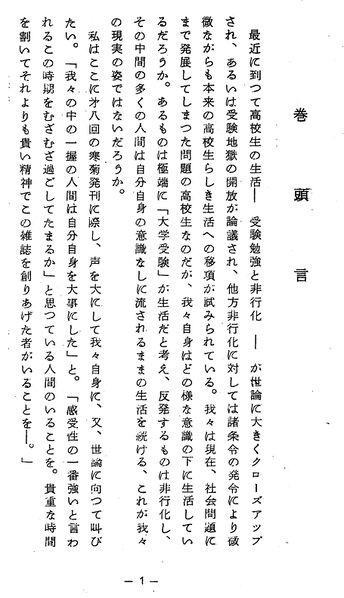 巻頭言
最近に到つて高校生の生活― 受験勉強と非行化 ―が世論に大きくクローズアップ
され、あるいは受験地獄の開放が論議され、他方非行化に対しては諸条令の発令により破
微ながらも本来の高校生らしき生活への移項が試みられている。我々は現在、社会問題に
まで発展してしまつた問題の高校生なのだが、我々自身はどの様な意識の下に生活してい
るだろうか。あるものは極端に「大学受験」が生活だと考え、反発するものは非行化し、
その中間の多くの人間は自分自身の意識なしに流されるままの生活を続ける、これが我々
の現実の姿ではないだろうか。
私はここに才八回の寒菊発刊に際し、声を大にして我々自身に、又、世論に向つて叫び
たい。「我々の中の一握の人間は自分自身を大事にした」と。「感受性の一番強いと言わ
れるこの時期をむざむざ過ごしてたまるか」と思つている人間のいることを。貴重な時間
を割いてそれよりも貴い精神でこの雑誌を創りあげた者がいることを―。」
― 1 ―